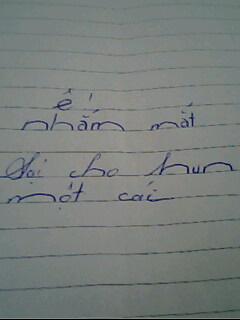 ê
nhắm mắt
Lại cho hun
một cái